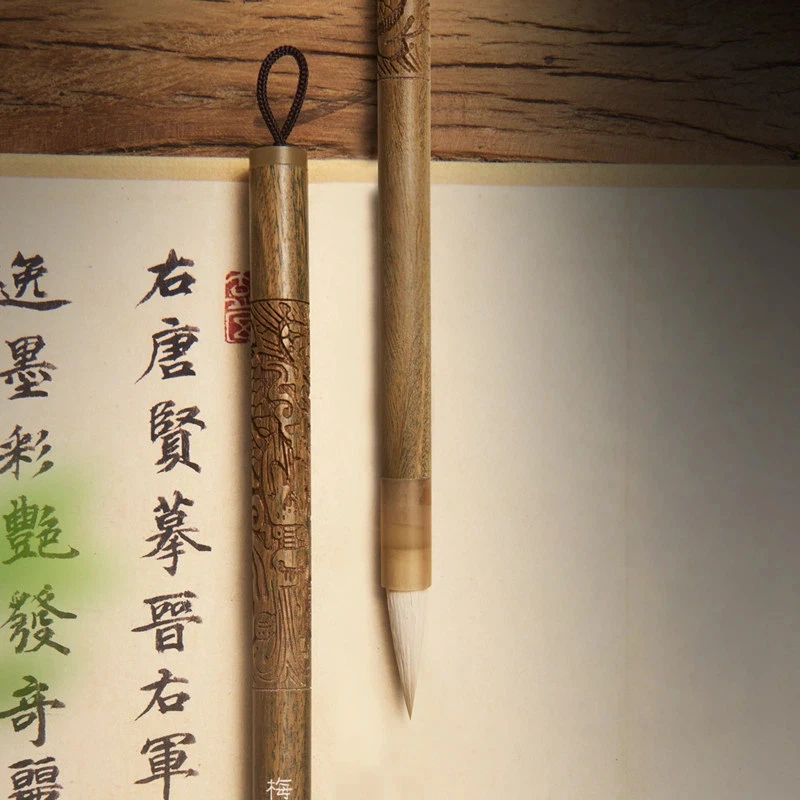 右唐賢摹晉右軍
逸墨彩艷發奇麗
梅